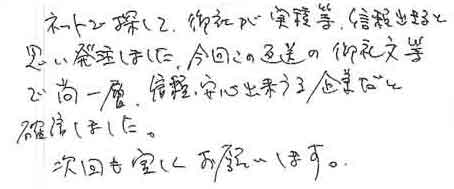 ネットで探して、御社が実積等、信頼出来ると
思い発注しました。今回この返送の御礼文等
で尚一層、信頼、安心出来うる企業だと
確信しました。
次回も宜しくお願いします。